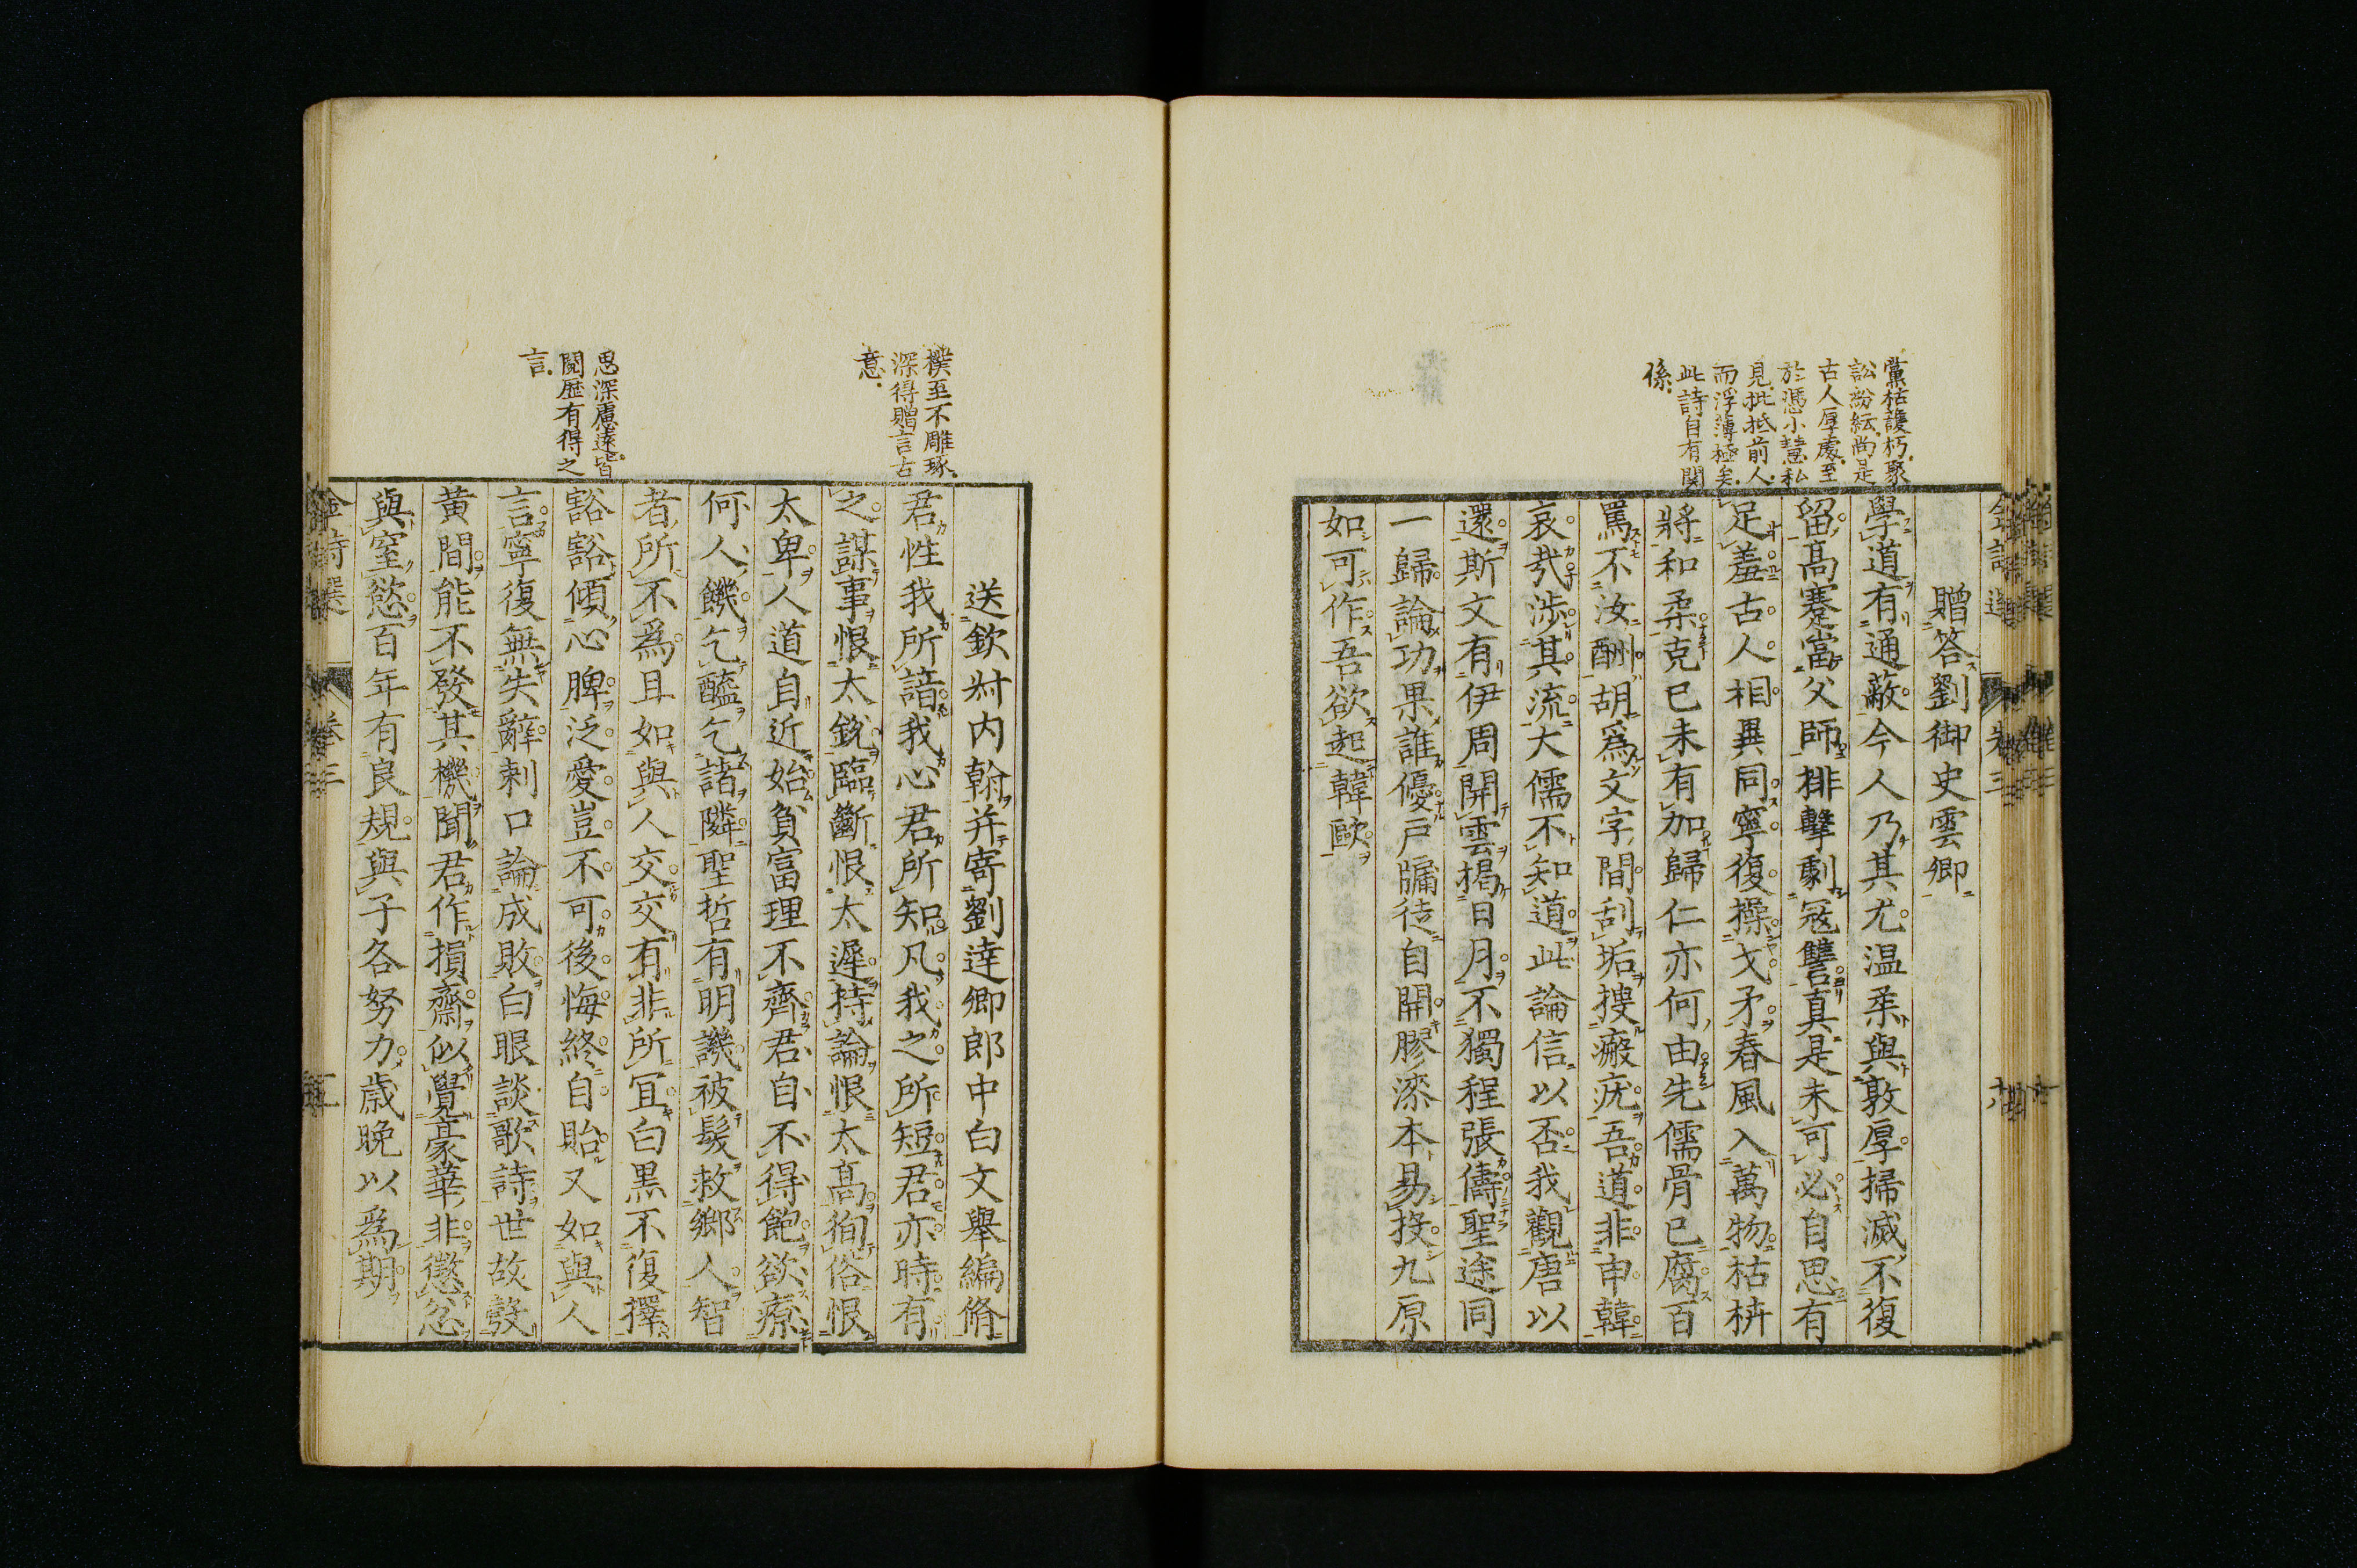 黨枯護朽聚
訟紛紜尚是
古人厚處至
於憑小慧私
見抵前人
而浮薄極矣
此詩自有関
係
贈答劉御史雲卿
學道有通蔽今人乃其尤温柔與敦厚掃滅不復
留高蹇當父師排擊劇寇讐真是未可必自思有
足羞古人相異同寧復操戈矛春風入萬物枯枿
將和柔克已未有加歸仁亦何由先儒骨已腐百
罵不汝酬胡爲文字間刮垢搜瘢疣吾道非申韓
哀哉涉其流大儒不知道此論信以否我觀唐以
還斯文有伊周開雲揭日月不獨程張儔聖途同
一歸論功果誰優戸牖徒自開膠漆本易投九原
如可作吾欲起韓歐
樸至不雕琢
深得贈言古
意
思深慮遠皆
閲歴有得之
言
送欽叔内翰并寄劉達卿郎中白文舉編脩
君性我所諳我心君所知凡我之所短君亦時有
之謀事恨太鋭臨斷恨太遲持論恨太高徇俗恨
太卑人道自近始負富理不齊君自不得飽欲療
何人饑乞醯乞諸隣聖哲有明譏被髮救鄉人智
者所不爲且如與人交交有非所宜白黒不復擇
豁豁傾心脾泛愛豈不可後悔終自貽又如與人
言寧復無失辭刺口論成敗白眼談歌詩世故發
黄間能不發其機聞君作損齋似覺豪華非懲忿
與窒慾百年有良規與子各努力歳晩以爲期
金詩選
卷三